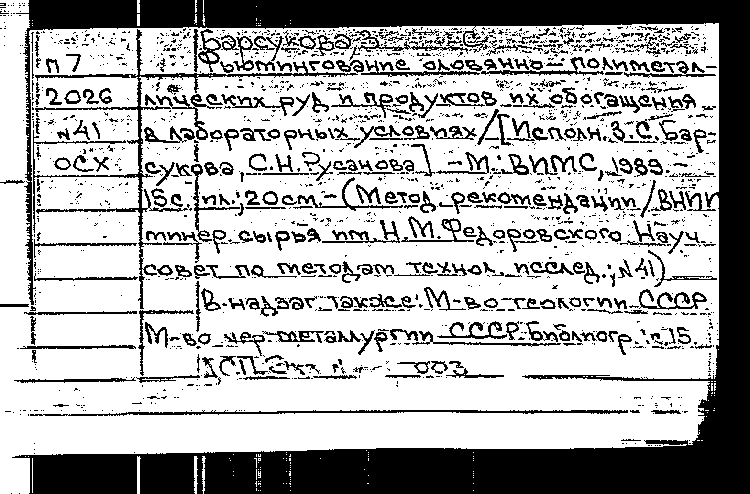 Барсукова, З. С.
п 7 Фьюмингование оловянно-полиметал-
2026 лических руд и продуктов их обогащения
N41 в лабораторных условиях/[Исполн. З.С. Бар-
ОСХ сукова, С.Н. Русанова] - М.: ВИМС, 1989. -
15с.: ил.; 20см. - (Метод. рекомендации / ВНИИ
минер. сырья им. Н.М. Федоровского. Науч.
совет по методам технол. исслед.; N41)
В надзаг. также: М-во геологии СССР,
М-во чер. металлургии СССР. Библиогр.: с. 15.
003